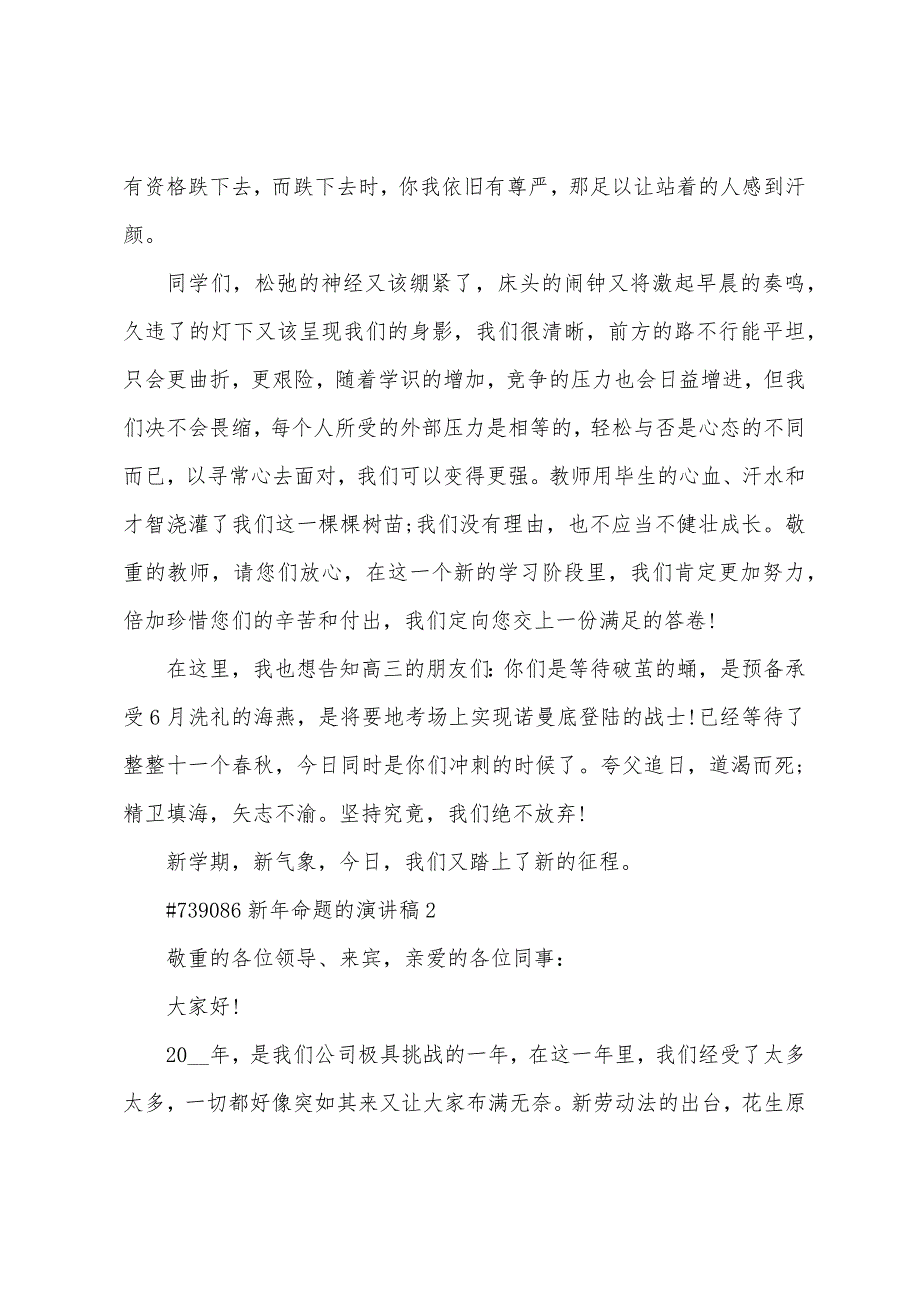 有资格跌下去，而跌下去时，你我依旧有尊严，那足以让站着的人感到汗
颜。
同学们，松弛的神经又该绷紧了，床头的闹钟又将激起早晨的奏鸣，
久违了的灯下又该呈现我们的身影，我们很清晰，前方的路不行能平坦，
只会更曲折，更艰险，随着学识的增加，竞争的压力也会日益增进，但我
们决不会畏缩，每个人所受的外部压力是相等的，轻松与否是心态的不同
而已，以寻常心去面对，我们可以变得更强。教师用毕生的心血、汗水和
才智浇灌了我们这一棵棵树苗;我们没有理由，也不应当不健壮成长。敬
重的教师，请您们放心，在这一个新的学习阶段里，我们肯定更加努力，
倍加珍惜您们的辛苦和付出，我们定向您交上一份满足的答卷!
在这里，我也想告知高三的朋友们：你们是等待破茧的蛹，是预备承
受 6 月洗礼的海燕，是将要地考场上实现诺曼底登陆的战士!已经等待了
整整十一个春秋，今日同时是你们冲刺的时候了。夸父追日，道渴而死;
精卫填海，矢志不渝。坚持究竟，我们绝不放弃!
新学期，新气象，今日，我们又踏上了新的征程。
#739086 新年命题的演讲稿 2
敬重的各位领导、来宾，亲爱的各位同事：
大家好!
20__年，是我们公司极具挑战的一年，在这一年里，我们经受了太多
太多，一切都好像突如其来又让大家布满无奈。新劳动法的出台，花生原